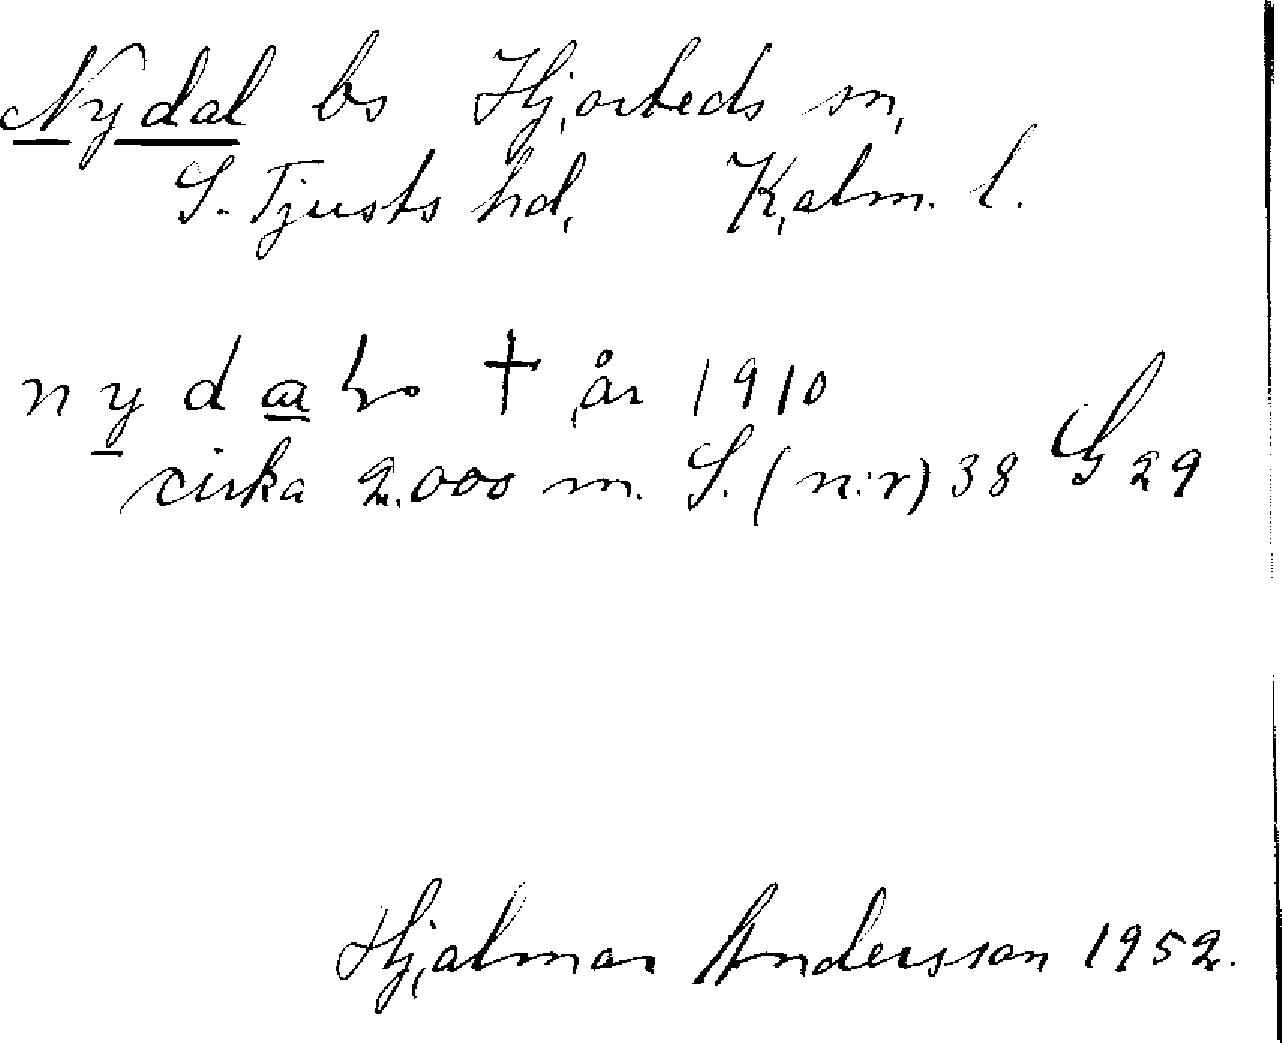 Nydal bs Hjorteds sn,
S. Tjusts hd, Kalm. l.
† år 1910
cirka 2.000 m. S. (n:r) 38 G 29
Hjalmar Andersson 1952.